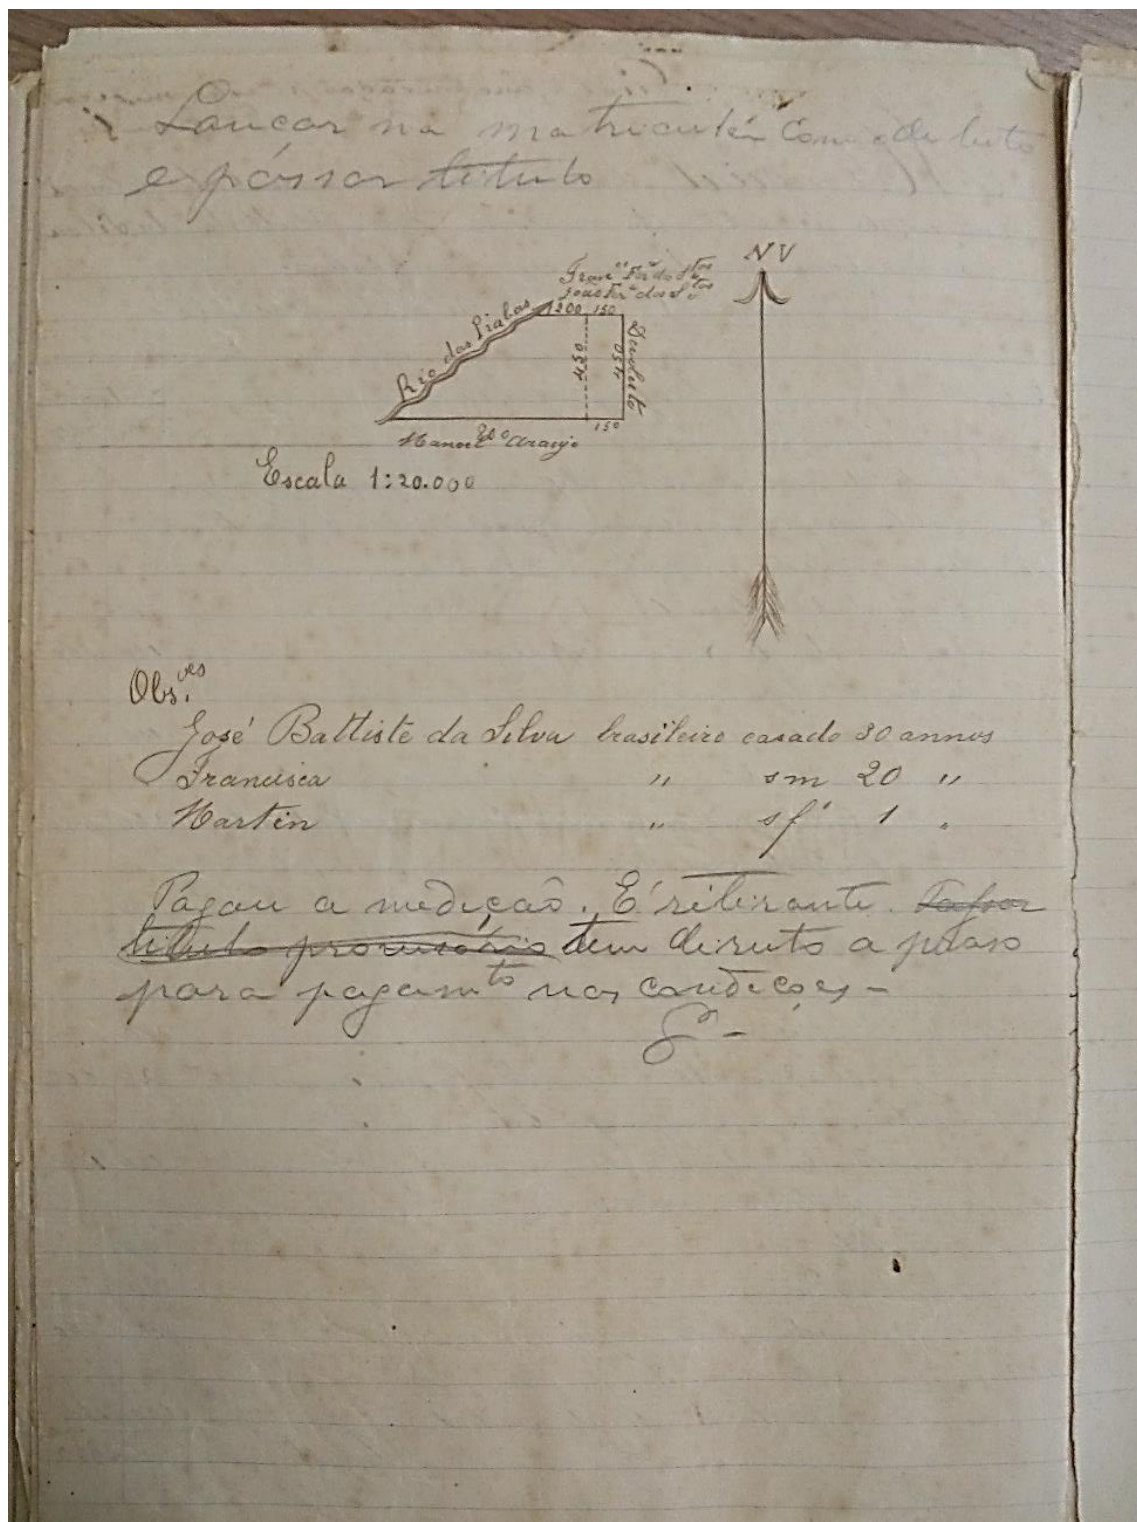 Lançar na matricula como de lucto
e passar titulo
N V
Franco Fera do Stos
João Fera dos Stos
1200 150
Rio das Piabas
450
450
Devoluto
150
Manoel Araujo
Escala 1:20.000
Obs.ves
José Battiste da Silva brasileiro casado 30 annos
Francisca " sm 20 "
Martin " sfº 1 "
Pagou a medição. É ritirante. Passar
titulo provisório tem diruto a praso
para pagamto nas condições -